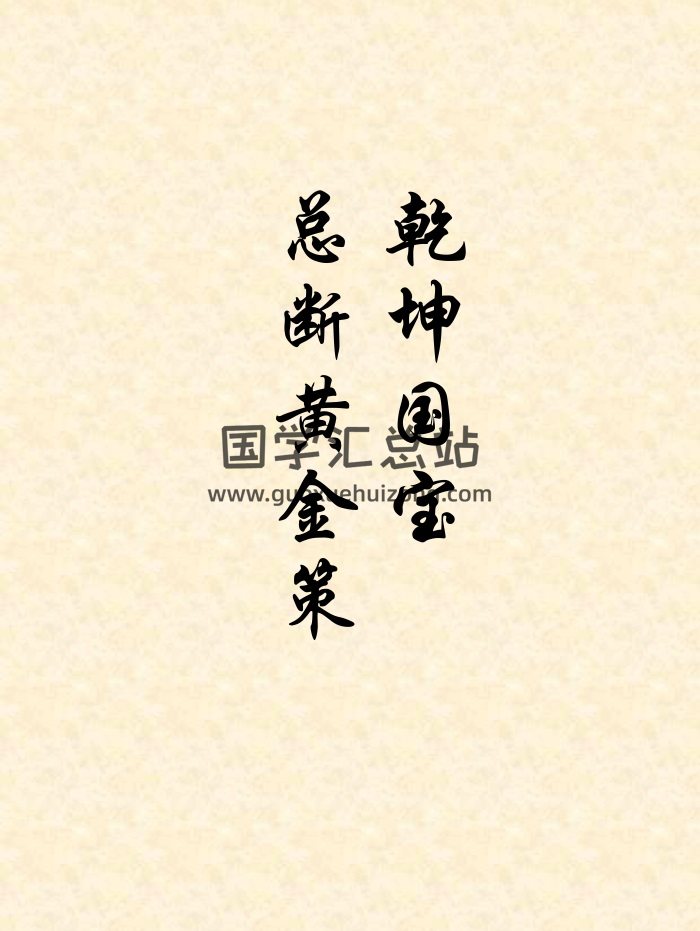 乾坤国宝
总断黄金策
国学汇总站
www.guoxuehuizong.com